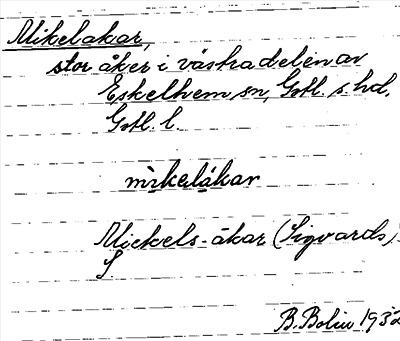 Mikelakar,
stor åker i västra delen av
Eskelhem sn, Gotl. s. hd,
Gotl. l.
mìkelákar
Mickels-åkar (Sigvards)
S.
B. Bolin 1932